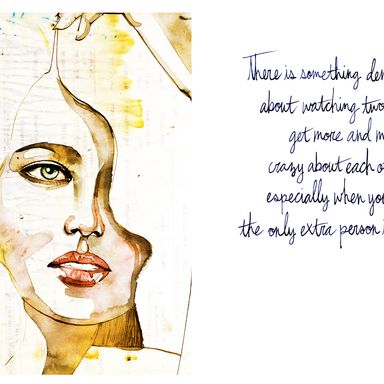 There is something
about watching two
get more and
crazy about each
especially when
the only extra person